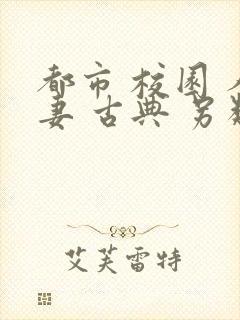 都市 校园
妻 古典 另
艾芙雷特